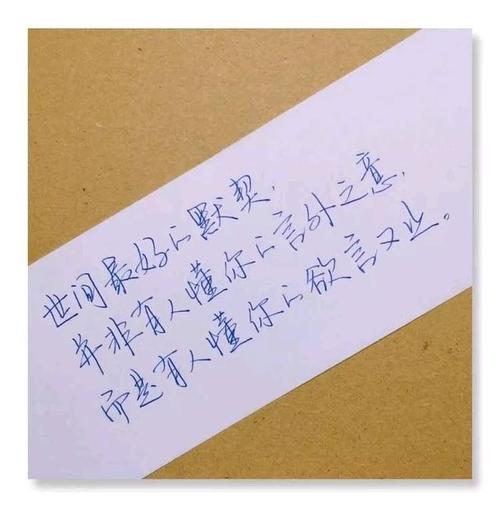 世间最好的默契,
并非有人懂你的言外之意,
而是有人懂你的欲言又止。